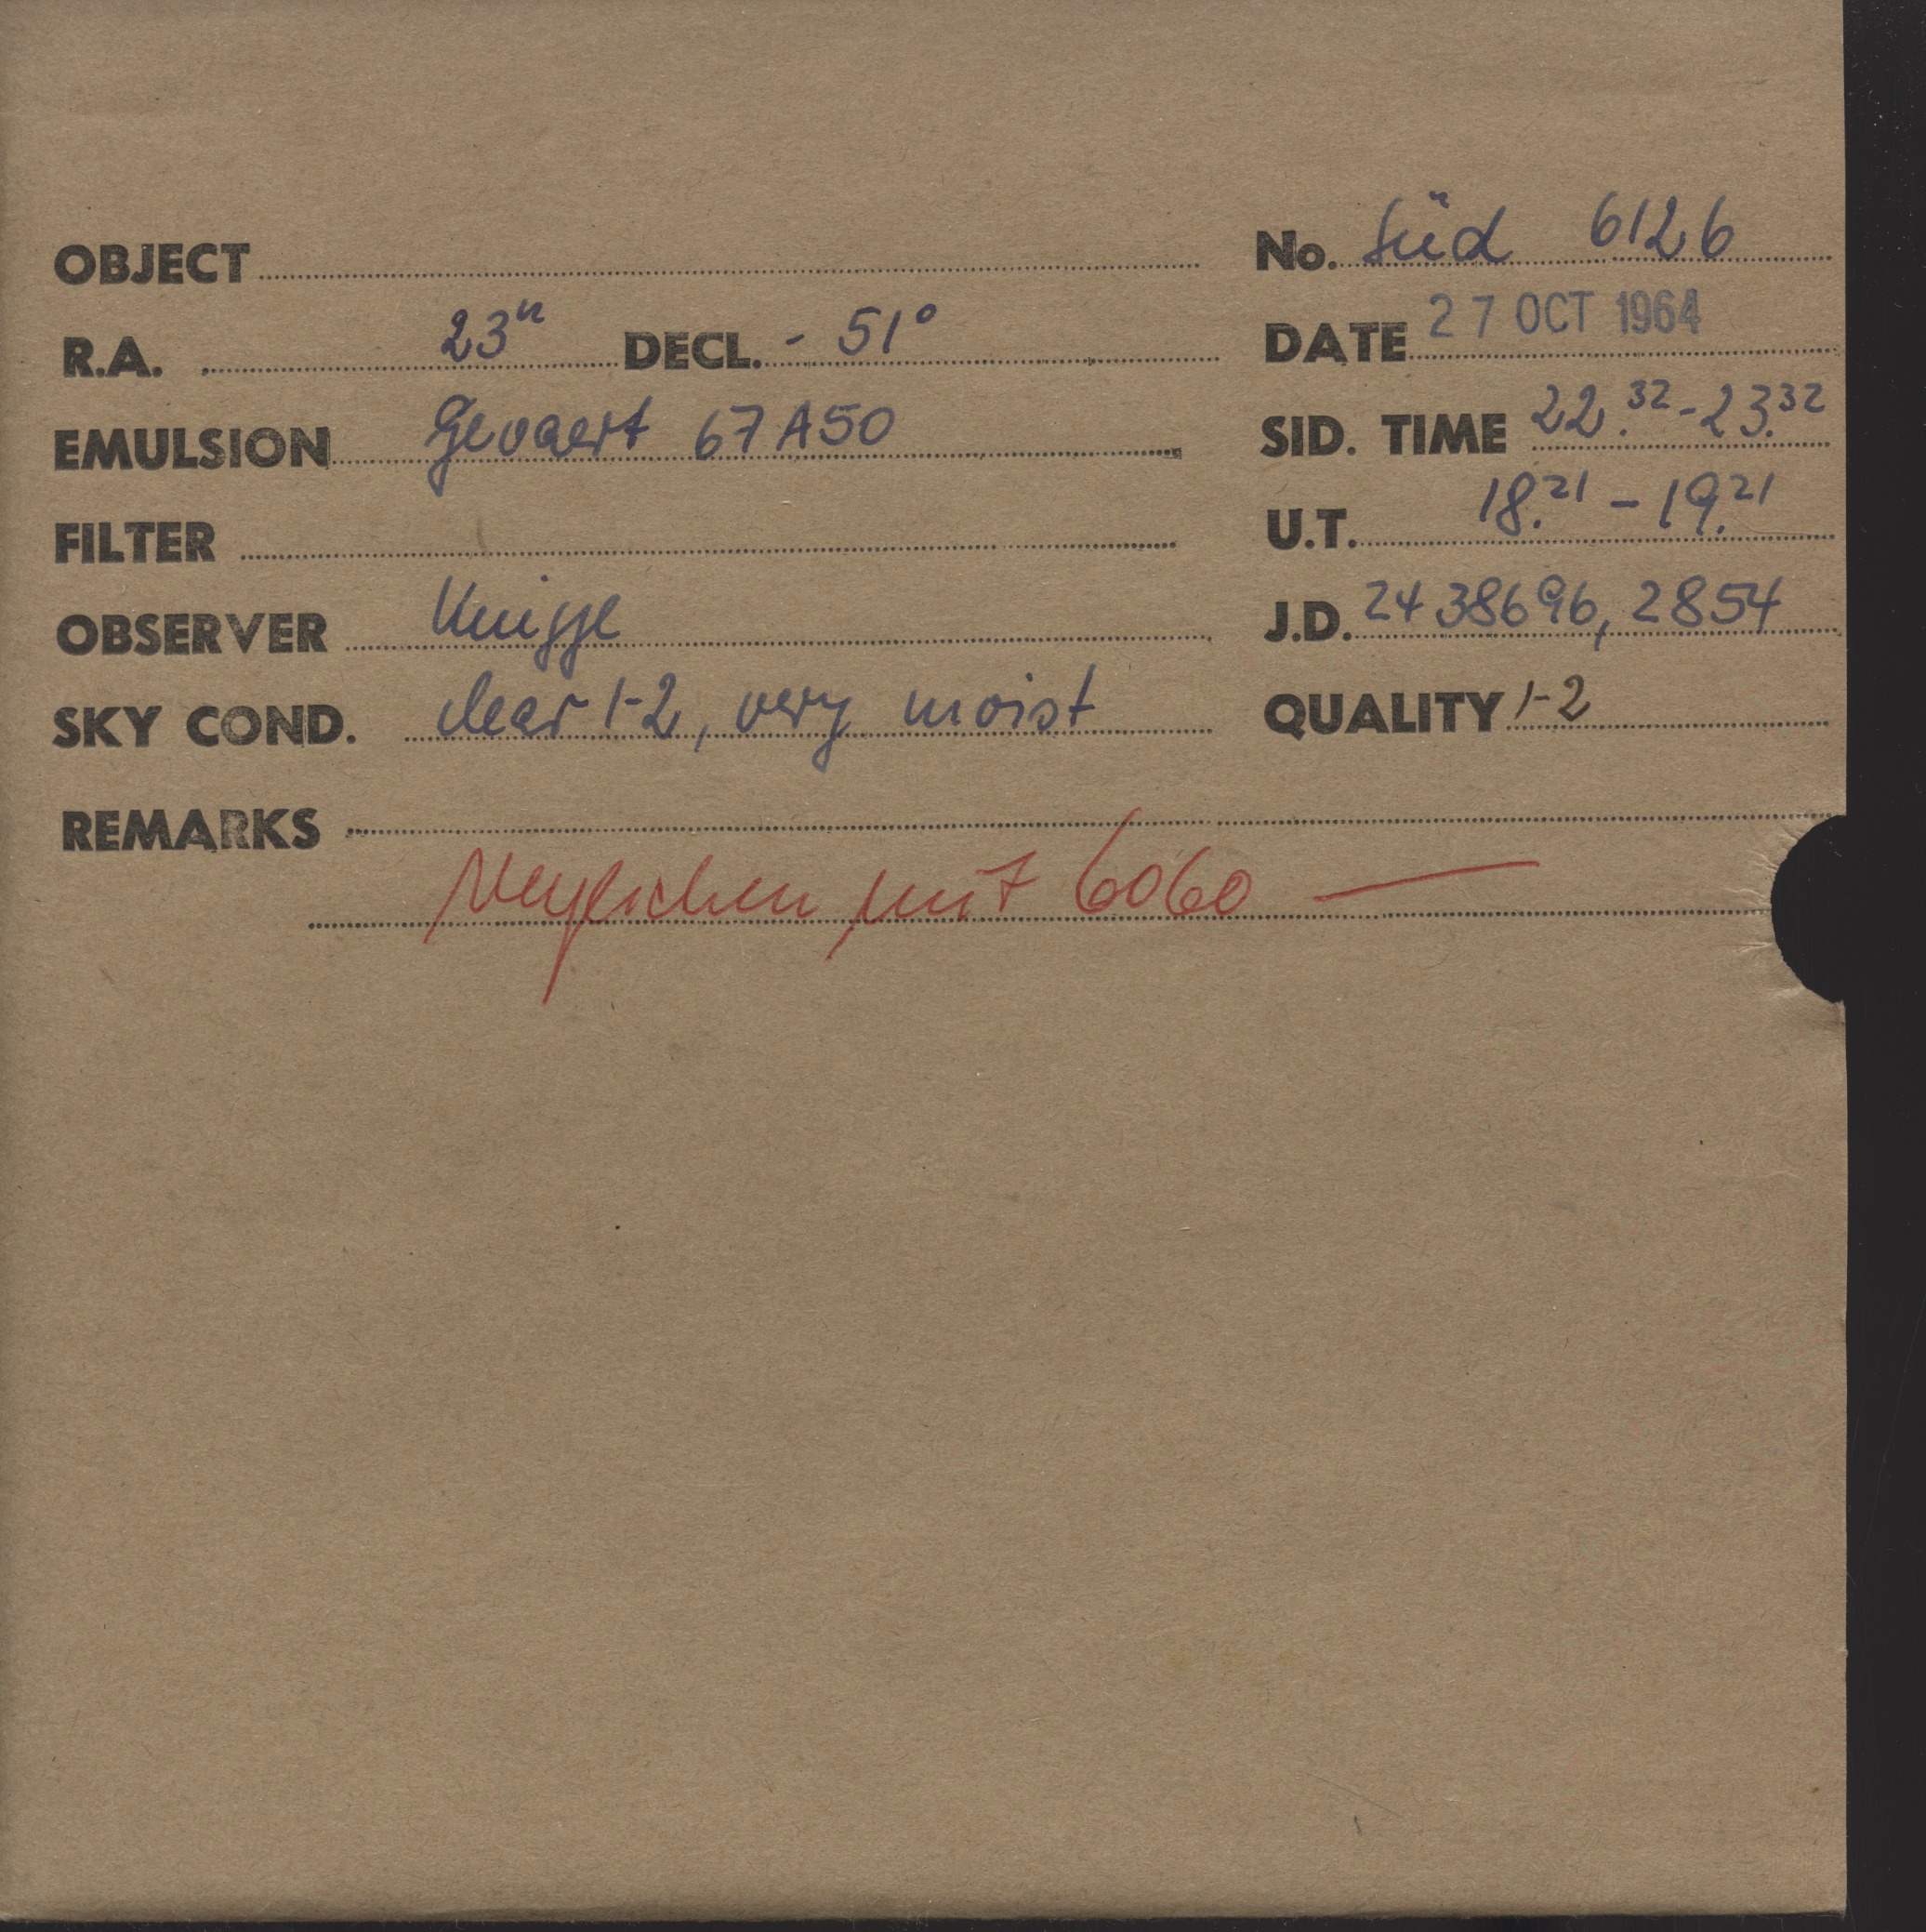 OBJECT No. Süd 6126
R.A. 23h DECL. - 51° DATE 27 OCT 1964
EMULSION Gevaert 67A50 SID. TIME 22.32-23.32
FILTER U.T. 18.21 - 19.21
OBSERVER Knigge J.D. 2438696,2854
SKY COND. clear 1-2, very moist QUALITY 1-2
REMARKS
Verglichen mit 6060 —